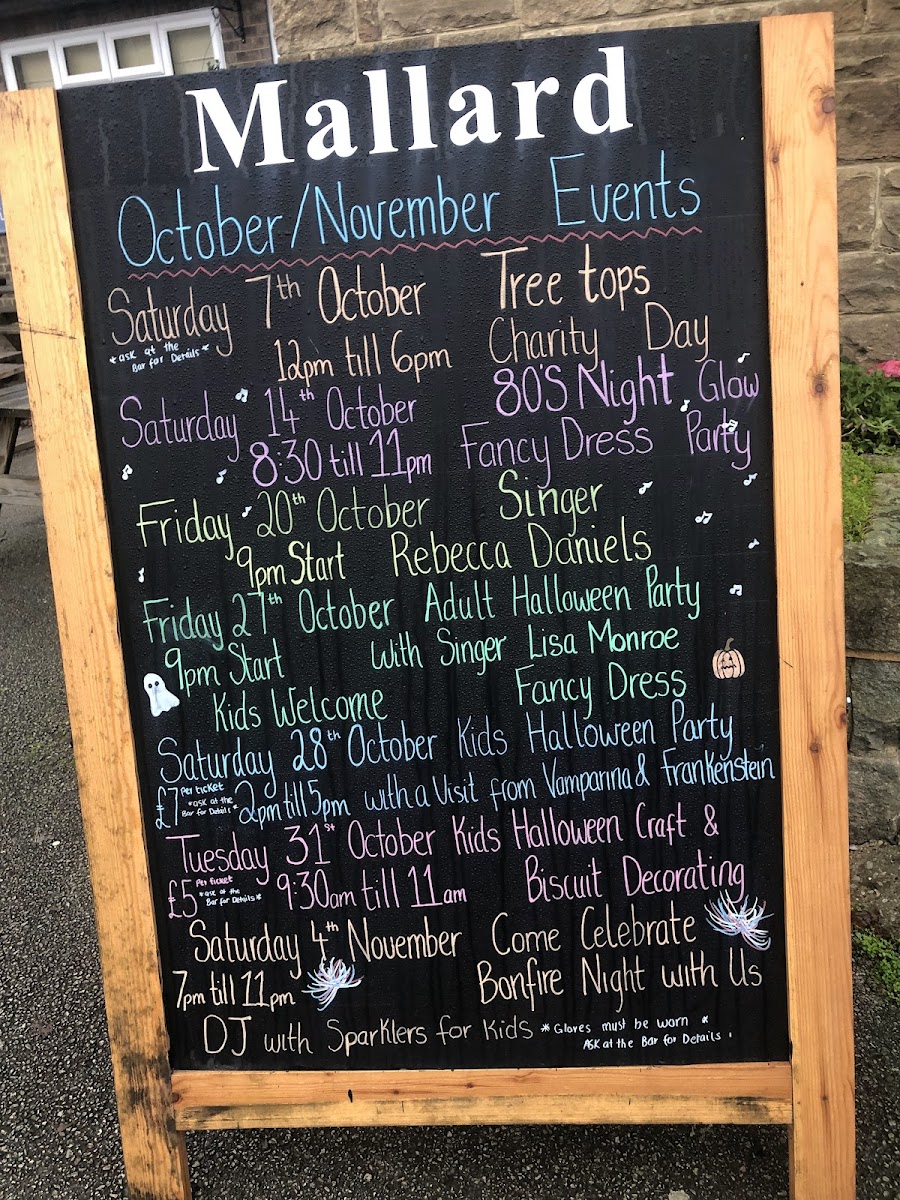 Mallard
October/November Events
Saturday 7th October Tree tops
*ask at the Bar for Details* 12pm till 6pm Charity Day
Saturday 14th October 80's Night Glow
8:30 till 11pm Fancy Dress Party
Friday 20th October Singer
9pm Start Rebecca Daniels
Friday 27th October Adult Halloween Party
9pm Start with Singer Lisa Monroe
Kids Welcome Fancy Dress
Saturday 28th October Kids Halloween Party
£7 Per ticket *ask at the Bar for Details* 2pm till 5pm with a Visit from Vamparina & Frankenstein
Tuesday 31st October Kids Halloween Craft &
£5 Per ticket *ask at the Bar for Details* 9:30am till 11am Biscuit Decorating
Saturday 4th November Come Celebrate
7pm till 11pm Bonfire Night with Us
DJ with Sparklers for Kids *Gloves must be worn*
Ask at the Bar for Details